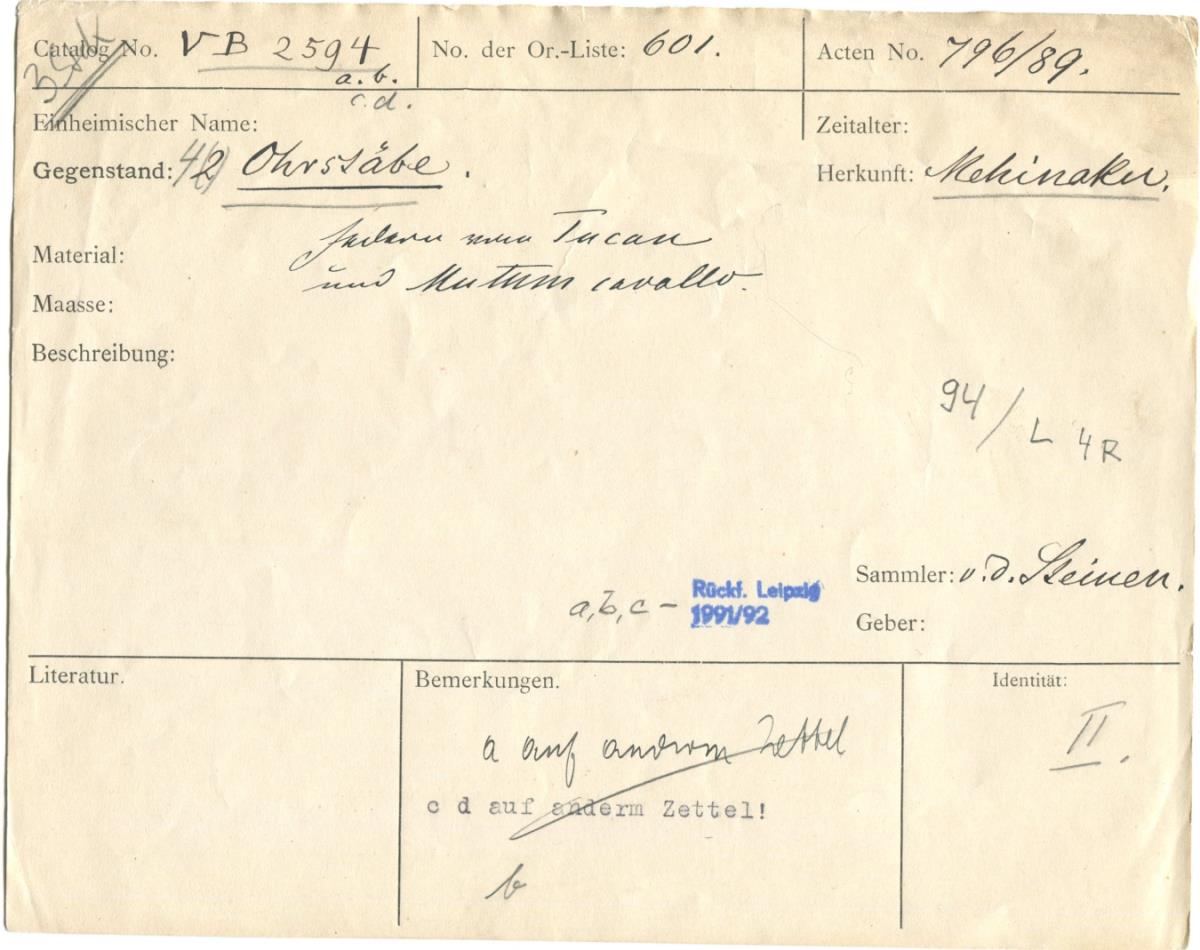 Catalog No. VB 2594 No. der Or.-Liste: 601. Acten No. 796/89.
a. b.
c. d.
Einheimischer Name: Zeitalter:
Gegenstand: 2 Ohrstäbe. Herkunft: Mehinaku.
Material: Federn vom Tucan
und Mutum cavallo.
Maasse:
Beschreibung:
94/L 4R
Sammler: v. d. Steinen.
a, b, c – Rückf. Leipzig
1991/92
Geber:
Literatur. Bemerkungen. Identität:
II.
a auf anderm Zettel
c d auf anderm Zettel!
b